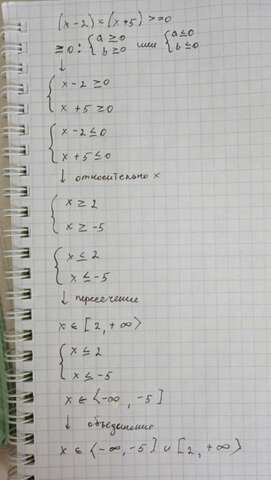 (x-2)×(x+5)>=0
≥0: { a≥0 или { a≤0
b≥0 b≤0
↓
{ x-2≥0
x+5≥0
{ x-2≤0
x+5≤0
↓ относительно x
{ x≥2
x≥-5
{ x≤2
x≤-5
↓ пересечение
x∈[2,+∞)
{ x≤2
x≤-5
x∈(-∞,-5]
↓ объединение
x∈(-∞,-5]∪[2,+∞)